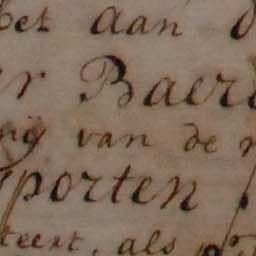 het aan
Baer
van de
porten
teert, als